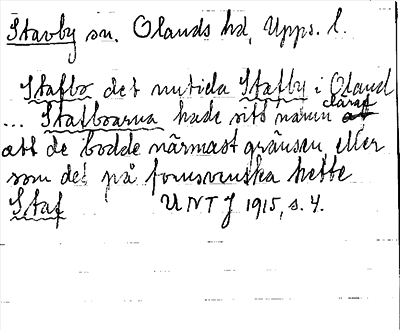 Stavby sn. Olands hd, Upps. l.
Stafbo det nutida Stafby i Oland
... Stafboarna hade sitt namn däraf
att de bodde närmast gränsen eller
som det på fornsvenska hette
Staf UNT J 1915, s. 4.